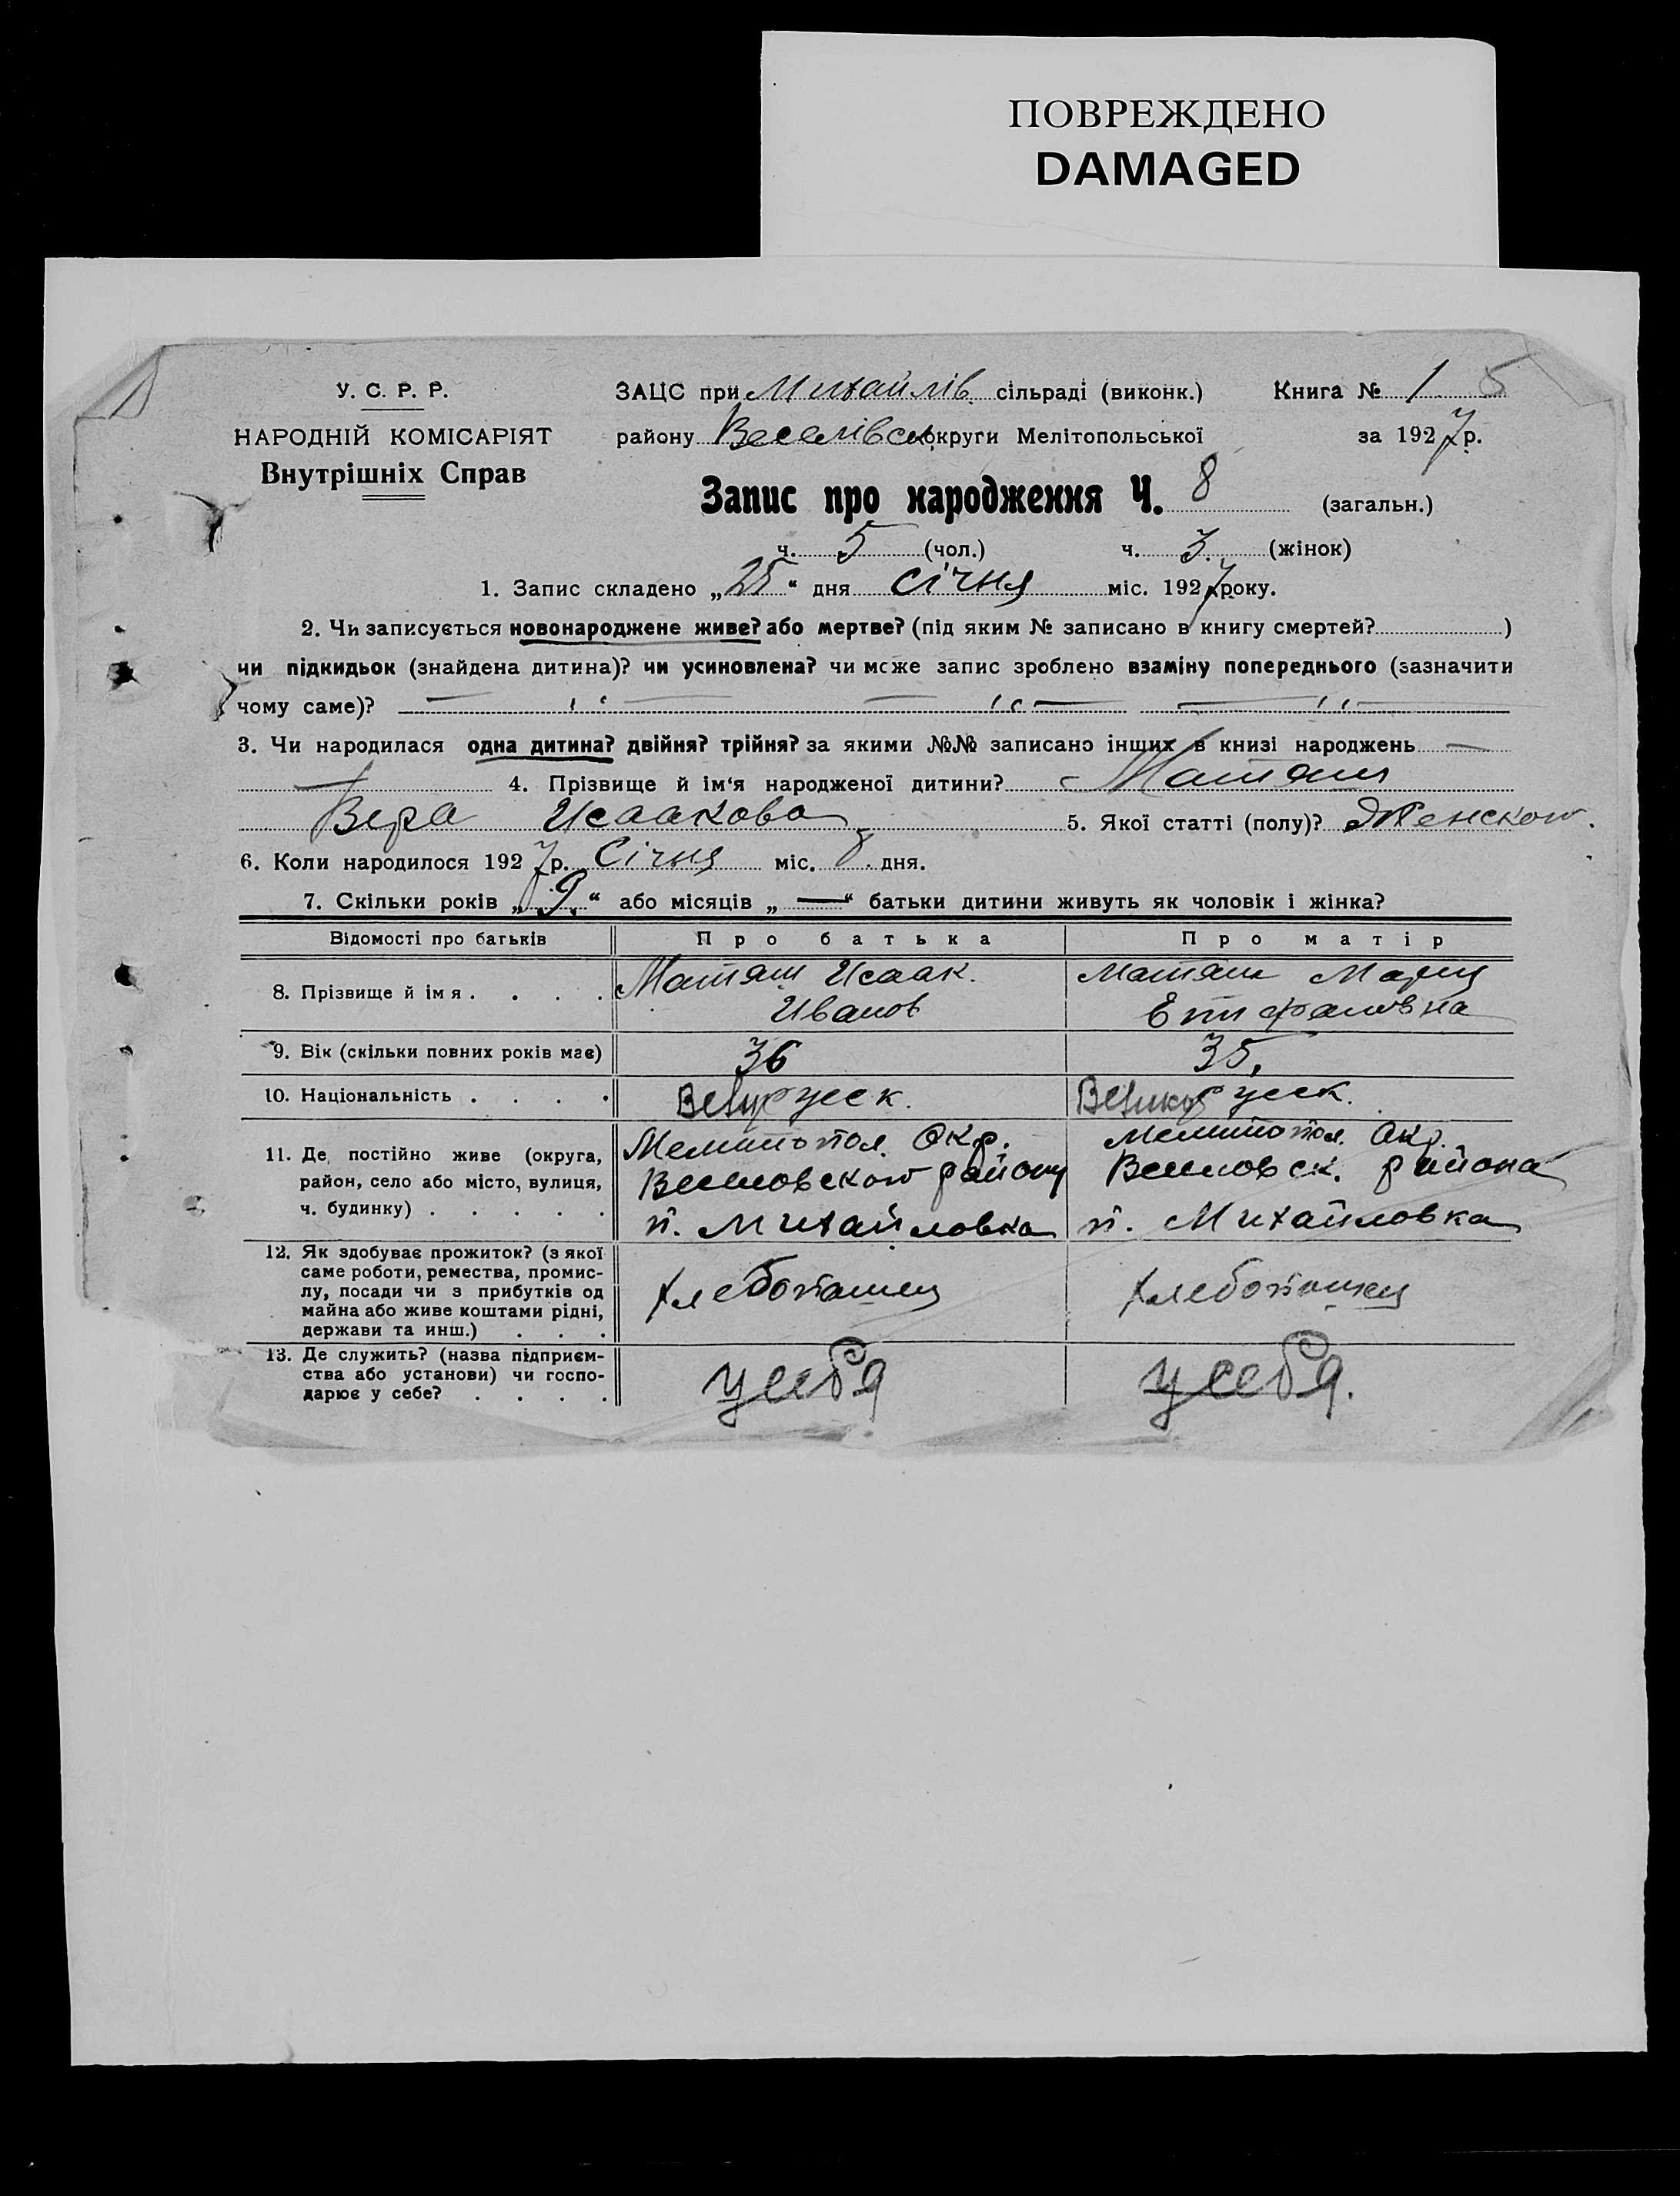 ПОВРЕЖДЕНО
DAMAGED
У. С. Р. Р.
НАРОДНІЙ КОМІСАРІЯТ
Внутрішніх Справ
ЗАЦС при Михайлів. сільраді (виконк.) Книга № 1 5
району Веселівськ округи Мелітопольської за 1927 р.
Запис про народження Ч. 8 (загальн.)
ч. 5 (чол.) ч. 3. (жінок)
1. Запис складено „25“ дня січня міс. 1927 року.
2. Чи записується новонароджене живе? або мертве? (під яким № записано в книгу смертей? )
чи підкидьок (знайдена дитина)? чи усиновлена? чи може запис зроблено взаміну попереднього (зазначити
чому саме)? — " — — " — — " —
3. Чи народилася одна дитина? двійня? трійня? за якими №№ записано інших в книзі народжень —
— 4. Прізвище й ім‘я народженої дитини? Матяш
Вера Исаакова 5. Якої статті (полу)? Женского.
6. Коли народилося 1927 р. Січня міс. 8 дня.
7. Скільки років „9.“ або місяців „—“ батьки дитини живуть як чоловік і жінка?
Відомості про батьків Про батька Про матір
8. Прізвище й імя . . . . Матяш Исаак. Иванов Матяш Мария Епифановна
9. Вік (скільки повних років має) 36 35,
10. Національність . . . . Великорусск. Великорусск.
11. Де постійно живе (округа, район, село або місто, вулиця, ч. будинку) . . . . . Мелитопол. Окр. Веселовского району п. Михайловка Мелитопол. Окр. Веселовск. района п. Михайловка
12. Як здобуває прожиток? (з якої саме роботи, ремества, промислу, посади чи з прибутків од майна або живе коштами рідні, держави та инш.) . . . Хлебопашец Хлебопашец
13. Де служить? (назва підприємства або установи) чи господарює у себе? . . . . у себя у себя.